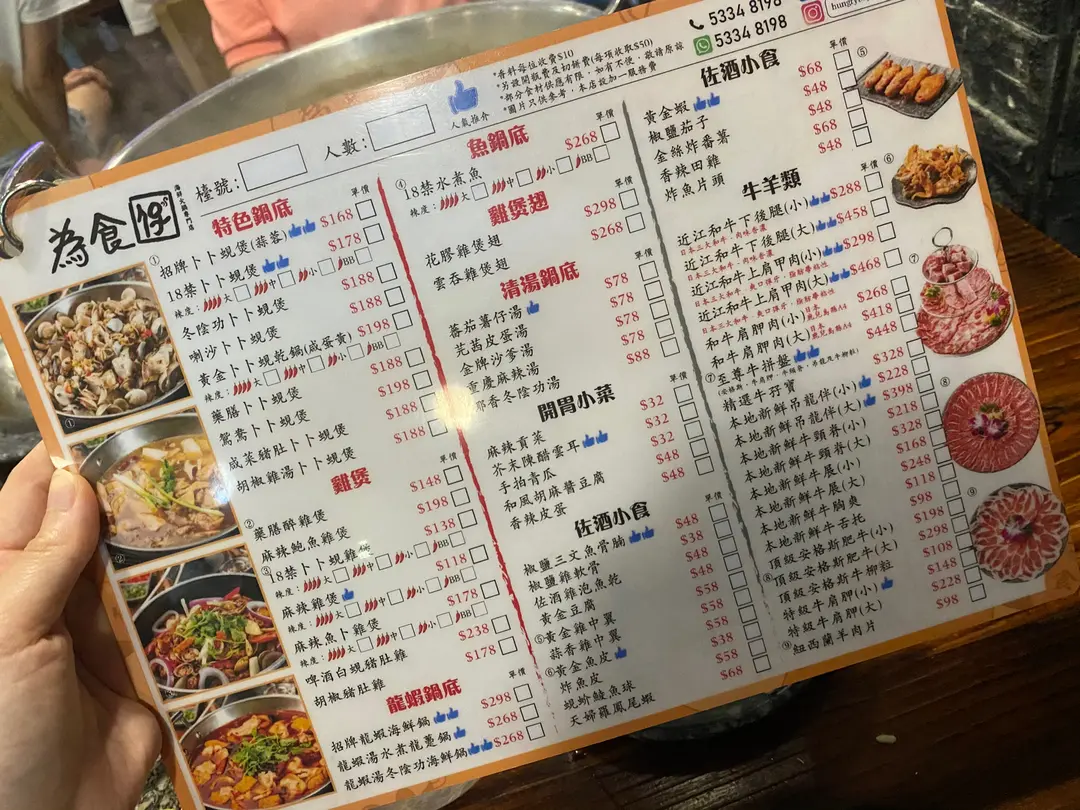 為食仔
海鮮火鍋專門店
檯號:
人數:
人氣推介
*香料每位收費$10
*另設開瓶費及切餅費(每項收取$50)
*部分食材供應有限，如有不便，敬請原諒
*圖片只供參考，本店設加一服務費
5334 8198
5334 8198
特色鍋底
單價
①招牌卜卜蜆煲(蒜蓉) $168
18禁卜卜蜆煲 $178
辣度: 大 中 小 BB
冬陰功卜卜蜆煲 $188
喇沙卜卜蜆煲 $188
黃金卜卜蜆乾鍋(咸蛋黃) $198
辣度: 大 中 小 BB
藥膳卜卜蜆煲 $188
鴛鴦卜卜蜆煲 $198
咸菜豬肚卜卜蜆煲 $188
胡椒雞湯卜卜蜆煲 $188
雞煲
單價
②藥膳醉雞煲 $148
麻辣鮑魚雞煲 $198
③18禁卜蜆雞煲 $138
辣度: 大 中 小 BB
麻辣雞煲 $118
辣度: 大 中 小 BB
麻辣魚卜雞煲 $178
辣度: 大 中 小 BB
啤酒白蜆豬肚雞 $238
胡椒豬肚雞 $178
龍蝦鍋底
單價
招牌龍蝦海鮮鍋 $298
龍蝦湯水煮龍躉鍋 $268
龍蝦湯冬陰功海鮮鍋 $268
魚鍋底
單價
④18禁水煮魚 $268
辣度: 大 中 小 BB
雞煲翅
單價
花膠雞煲翅 $298
雲吞雞煲翅 $268
清湯鍋底
單價
蕃茄薯仔湯 $78
芫茜皮蛋湯 $78
金牌沙爹湯 $78
重慶麻辣湯 $78
椰香冬陰功湯 $88
開胃小菜
單價
麻辣貢菜 $32
芥末陳醋雲耳 $32
手拍青瓜 $32
和風胡麻醬豆腐 $48
香辣皮蛋 $48
佐酒小食
單價
椒鹽三文魚骨腩 $48
椒鹽雞軟骨 $38
佐酒雞泡魚乾 $48
黃金豆腐 $58
⑤黃金雞中翼 $58
蒜香雞中翼 $58
⑥黃金魚皮 $38
炸魚皮 $58
蜆蚧鯪魚球 $58
天婦羅鳳尾蝦 $68
佐酒小食
單價
黃金蝦 $68
椒鹽茄子 $48
金絲炸番薯 $48
香辣田雞 $68
炸魚片頭 $48
牛羊類
單價
近江和牛下後腿(小) $288
日本三大和牛，肉味香濃
近江和牛下後腿(大) $458
日本三大和牛，肉味香濃
近江和牛上肩胛肉(小) $298
日本三大和牛，爽口彈牙，脂肪帶黏性
近江和牛上肩胛肉(大) $468
日本三大和牛，爽口彈牙，脂肪帶黏性
和牛肩胛肉(小) $268
和牛肩胛肉(大) $418
⑦至尊牛拼盤 $448
精選牛孖寶 $328
本地新鮮吊龍伴(小) $228
本地新鮮吊龍伴(大) $398
本地新鮮牛頸脊(小) $218
本地新鮮牛頸脊(大) $328
本地新鮮牛展(小) $168
本地新鮮牛展(大) $248
本地新鮮牛胸爽 $118
本地新鮮牛舌托 $98
頂級安格斯肥牛(小) $198
⑧頂級安格斯肥牛(大) $298
頂級安格斯牛柳粒 $108
特級牛肩胛(小) $148
特級牛肩胛(大) $228
⑨紐西蘭羊肉片 $98
①
②
⑤
⑥
⑦
⑧
⑨